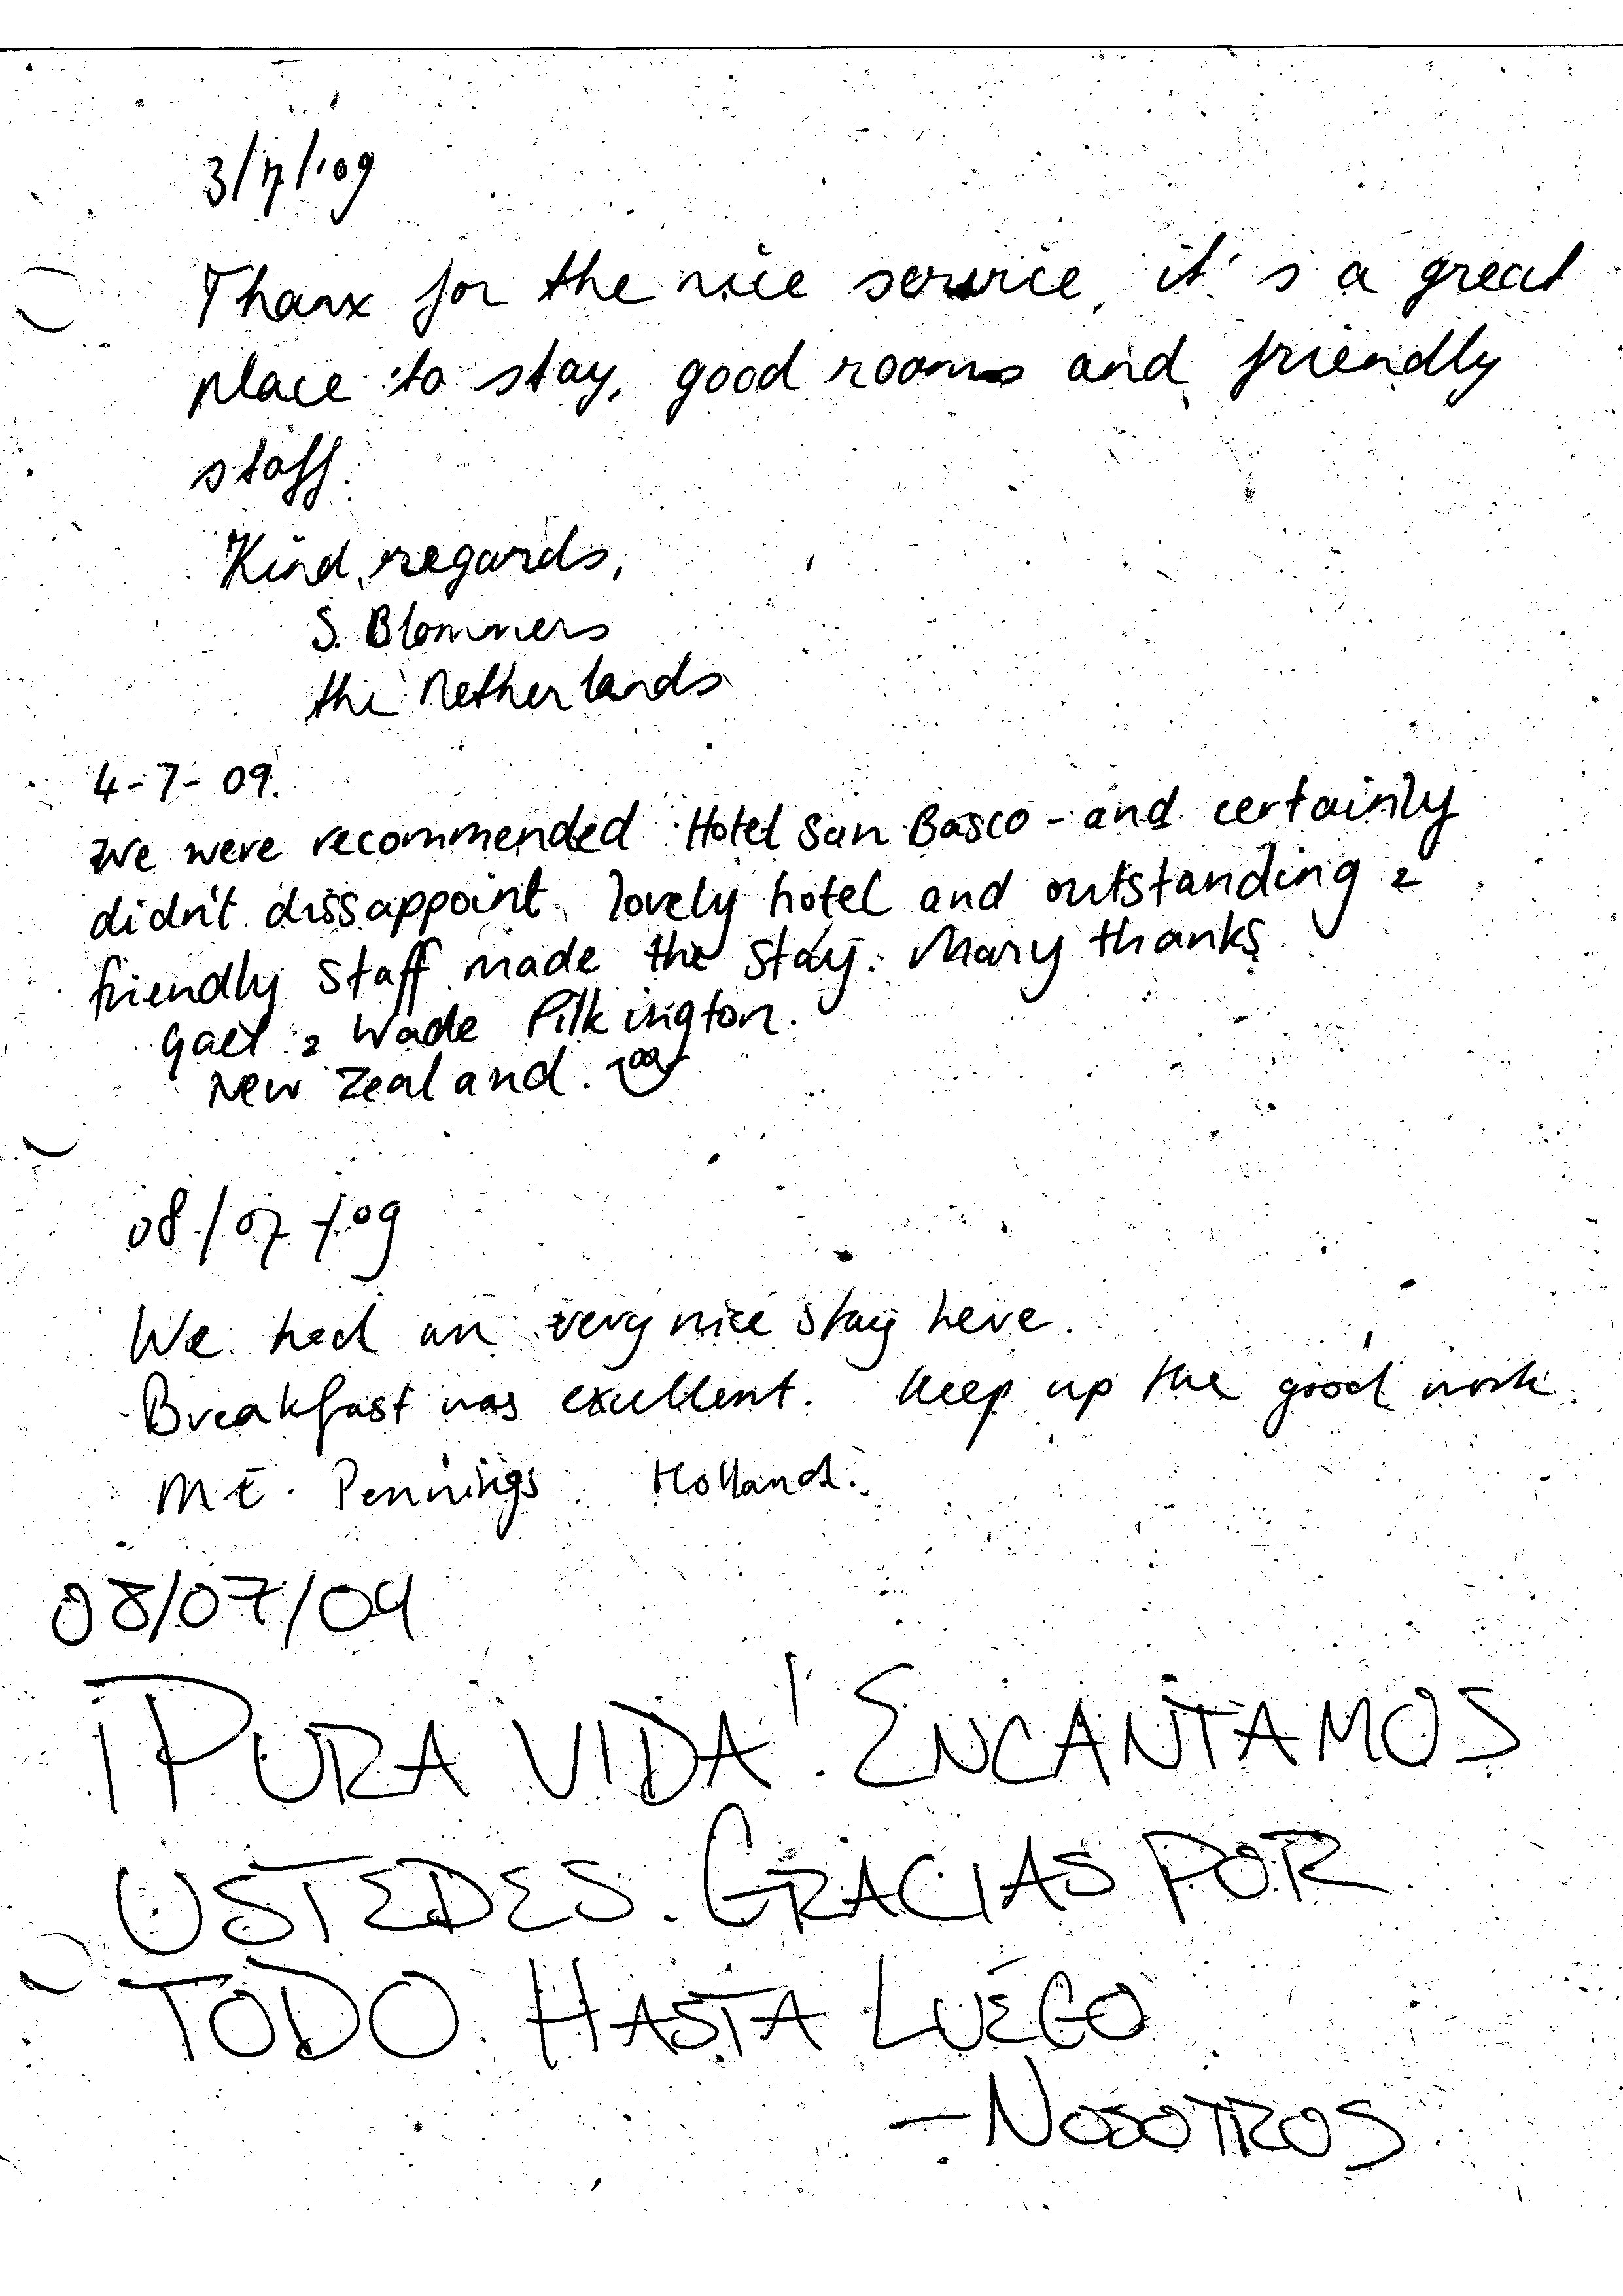 3/7/'09
Thanx for the nice service, it's a great
place to stay, good rooms and friendly
staff.
Kind regards,
S. Blommers
the Netherlands
4-7-09.
We were recommended Hotel San Basco - and certainly
didn't dissappoint. lovely hotel and outstanding &
friendly staff made the stay. Many thanks
Gael & Wade Pilkington.
New Zealand.
08/07/09
We had an very nice stay here.
Breakfast was exellent. Keep up the good work.
M E. Pennings. Holland.
08/07/09
¡PURA VIDA! ENCANTAMOS
USTEDES. GRACIAS POR
TODO. HASTA LUEGO
- NOSOTROS